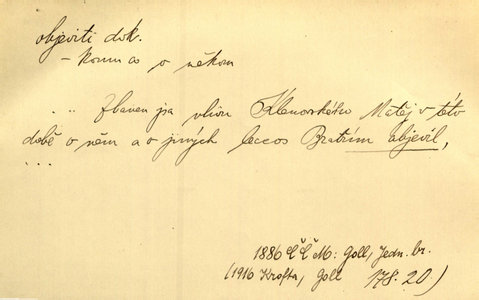 objeviti dok.
– komu co o někom
... Zbaven jsa vlivu Klenovského Matěj v této
době o něm a o jiných leccos Bratřím objevil,
...
1886 ČČM: Goll, Jedn. br.
(1916 Krofta, Goll 178.20)